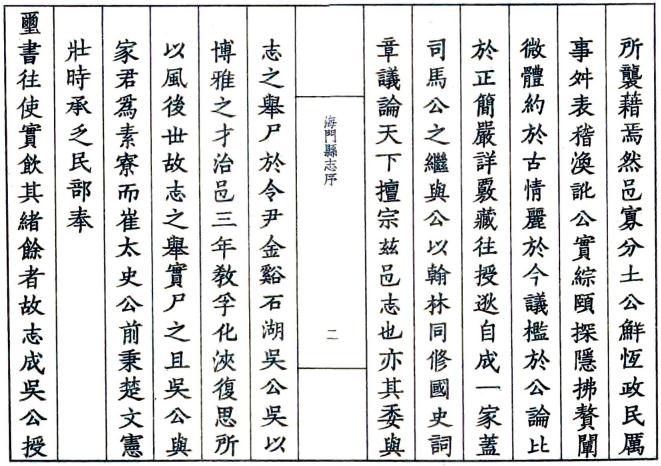 所襲藉焉然邑寡分土公鮮恆政民厲
事舛表稽渙訛公實綜頤探隱拂贅闡
微體約於古情麗於今議檻於公論比
於正簡嚴詳覈藏往授逖自成一家蓋
司馬公之繼與公以翰林同修國史詞
章議論天下擅宗玆邑志也亦其委與
海門縣志序
二
志之舉尸於令尹金谿石湖吳公吳以
博雅之才治邑三年敎孚化浹復思所
以風後世故志之舉實尸之且吳公與
家君爲素寮而崔太史公前秉楚文憲
壯時承乏民部奉
璽書往使實飮其緒餘者故志成吳公授